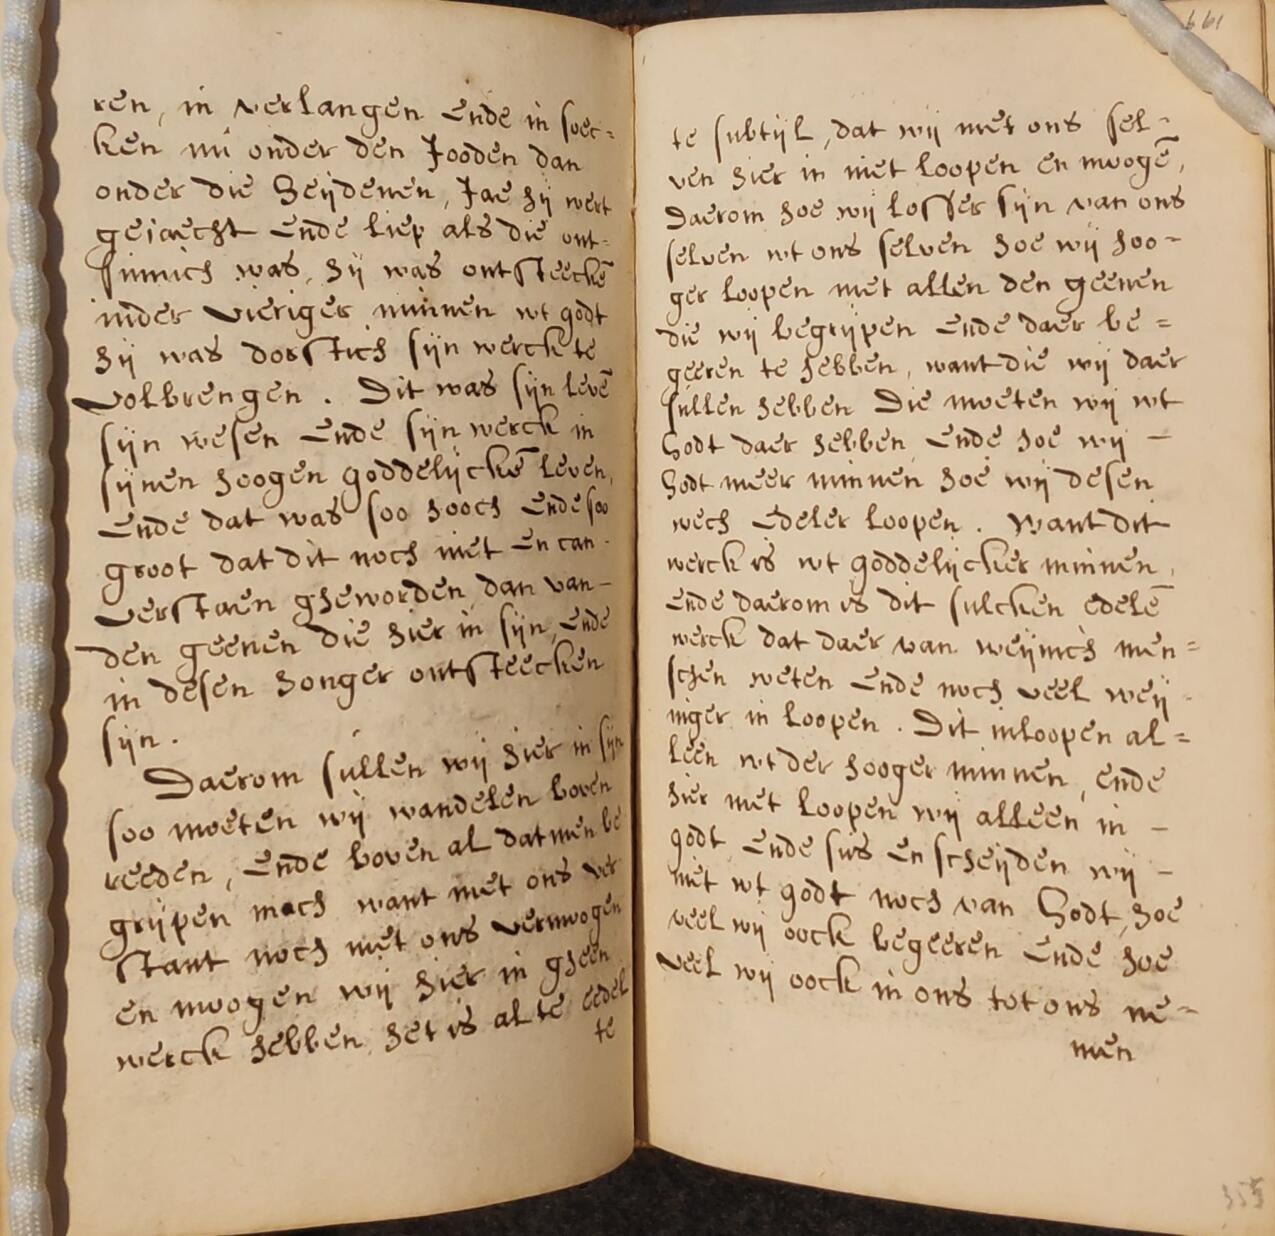 ren, in verlangen ende in soec=
ken nu onder den Jooden dan
onder die heijdenen, Jae hij wert
geiaecht ende liep als die ont=
sinnich was, hij was ontsteeckē
inder vieriger minnen wt godt
hij was dorstich sijn werck te
volbrengen. Dit was sijn levē
sijn wesen ende sijn werck in
sijnen hoogen goddelijckē leven,
ende dat was soo hooch ende soo
groot dat dit noch niet en can
verstaen gheworden dan van-
den geenen die hier in sijn, ende
in desen honger ontsteecken
sijn.
Daerom sullen wij hier in sijn
soo moeten wij wandelen boven
reeden, ende boven al dat men be
grijpen mach want met ons ver
stant noch met ons vermoogen
en moogen wij hier in gheen
werck hebben, het is al te edel
te
661
te subtijl, dat wij met ons sel=
ven hier in niet loopen en moogē,
Daerom hoe wij losser sijn van ons
selven wt ons selven hoe wij hoo-
ger loopen met allen den geenen
die wij begrijpen ende daer be=
geeren te hebben, want die wij daer
sullen hebben Die moeten wij wt
Godt daer hebben, ende hoe wij -
Godt meer minnen hoe wij desen
wech edeler loopen. Want dit
werck is wt goddelijcker minnen,
ende daerom is dit sulcken edelē
werck dat daer van weijnich men=
schen weten ende noch veel weij
niger in loopen. Dit inloopen al=
leen wt der hooger minnen, ende
hier met loopen wij alleen in -
godt, ende sus en scheijden wij -
niet wt godt noch van Godt, hoe
veel wij oock begeeren ende hoe
veel wij oock in ons tot ons ne=
men
355